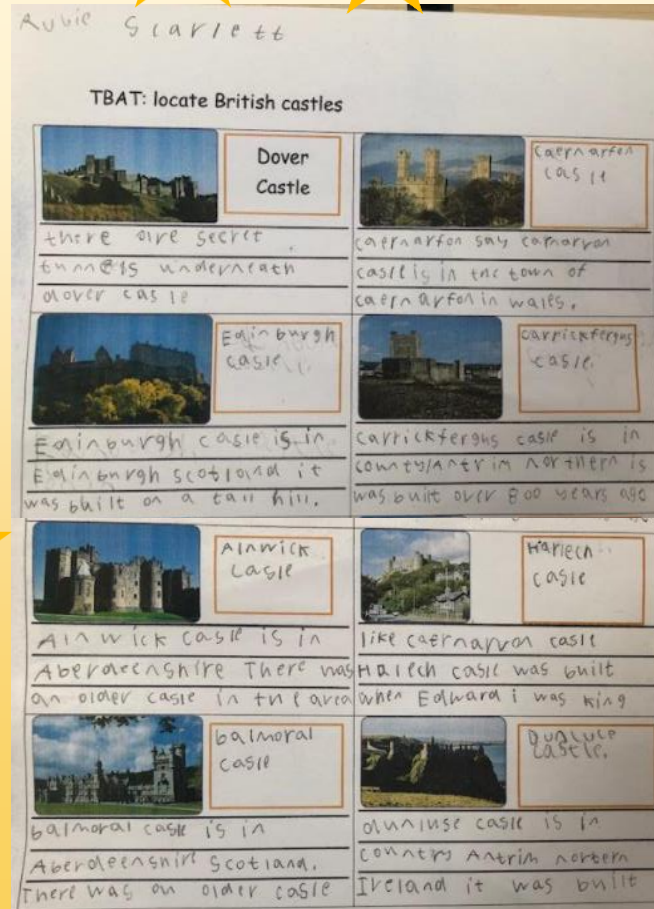 Rubie Scarlett
TBAT: locate British castles
Dover
Castle
there are secret
tunnels underneath
dover casle
caernarfon
casle
caernarfon say carnarvon
casle is in the town of
caernarfon in wales.
Edinburgh
casle
Edinburgh casle is in
Edinburgh scotland it
was built on a tall hill.
carrickfergus
casle.
carrickfergus casle is in
county Antrim northern is
was built over 800 years ago
Alnwick
casle
Alnwick casle is in
Aberdeenshire There was
an older casle in the area
Harlech
casle
like caernarvon casle
Halech casle was built
when Edward i was king
balmoral
casle
balmoral casle is in
Aberdeenshire Scotland.
There was an older casle
Dunluce
castle.
dunluse casle is in
country Antrim nortern
Ireland it was built